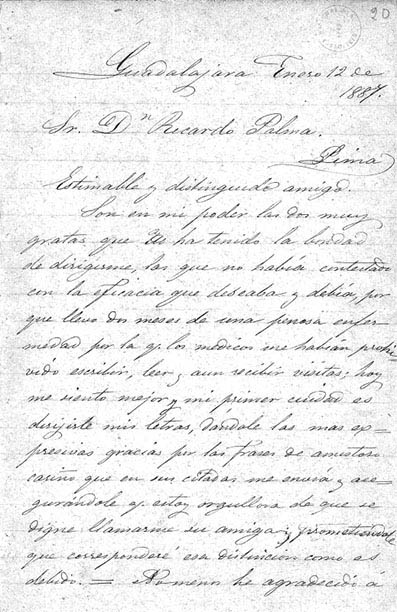 20
Guadalajara Enero 12 de
1887.
Sr. Dn Ricardo Palma.
Lima
Estimable y distinguido amigo.
Son en mi poder las dos muy
gratas que Ud ha tenido la bondad
de dirigirme, las que no había contestado
con la eficacia que deseaba y debia, por
que llevo dos meses de una penosa enfer
medad por la q. los medicos me habian prohi
vido escribir, leer y aun recibir visitas; hoy
me siento mejor y mi primer cuidad es
dirijirle mis letras, dandole las mas ex=
presivas gracias por las frases de amistoso
cariño que en sus citadas me envía y ase=
gurándole q. estoy orgullosa de que se
digne llamarme su amiga y prometiendole
que corresponderé esa distinción como es
debido. = No menos he agradecido á